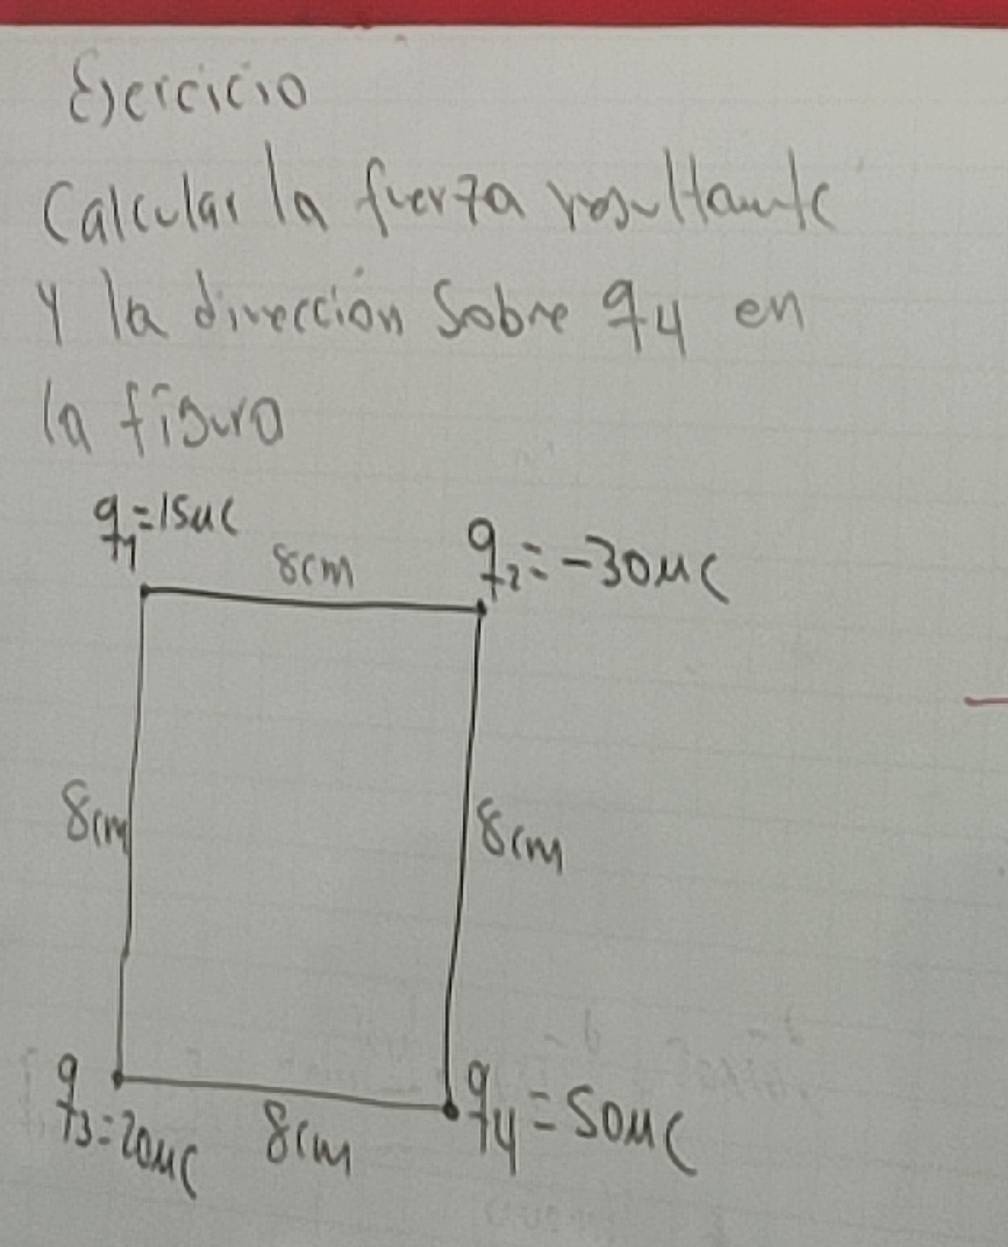 Ejercicio
Calcular la fuerza resultante
y la dirección Sobre q4 en
la figura
q1=15μC
8cm
q2=-30μC
8cm
8cm
q3=20μC
8cm
q4=50μC